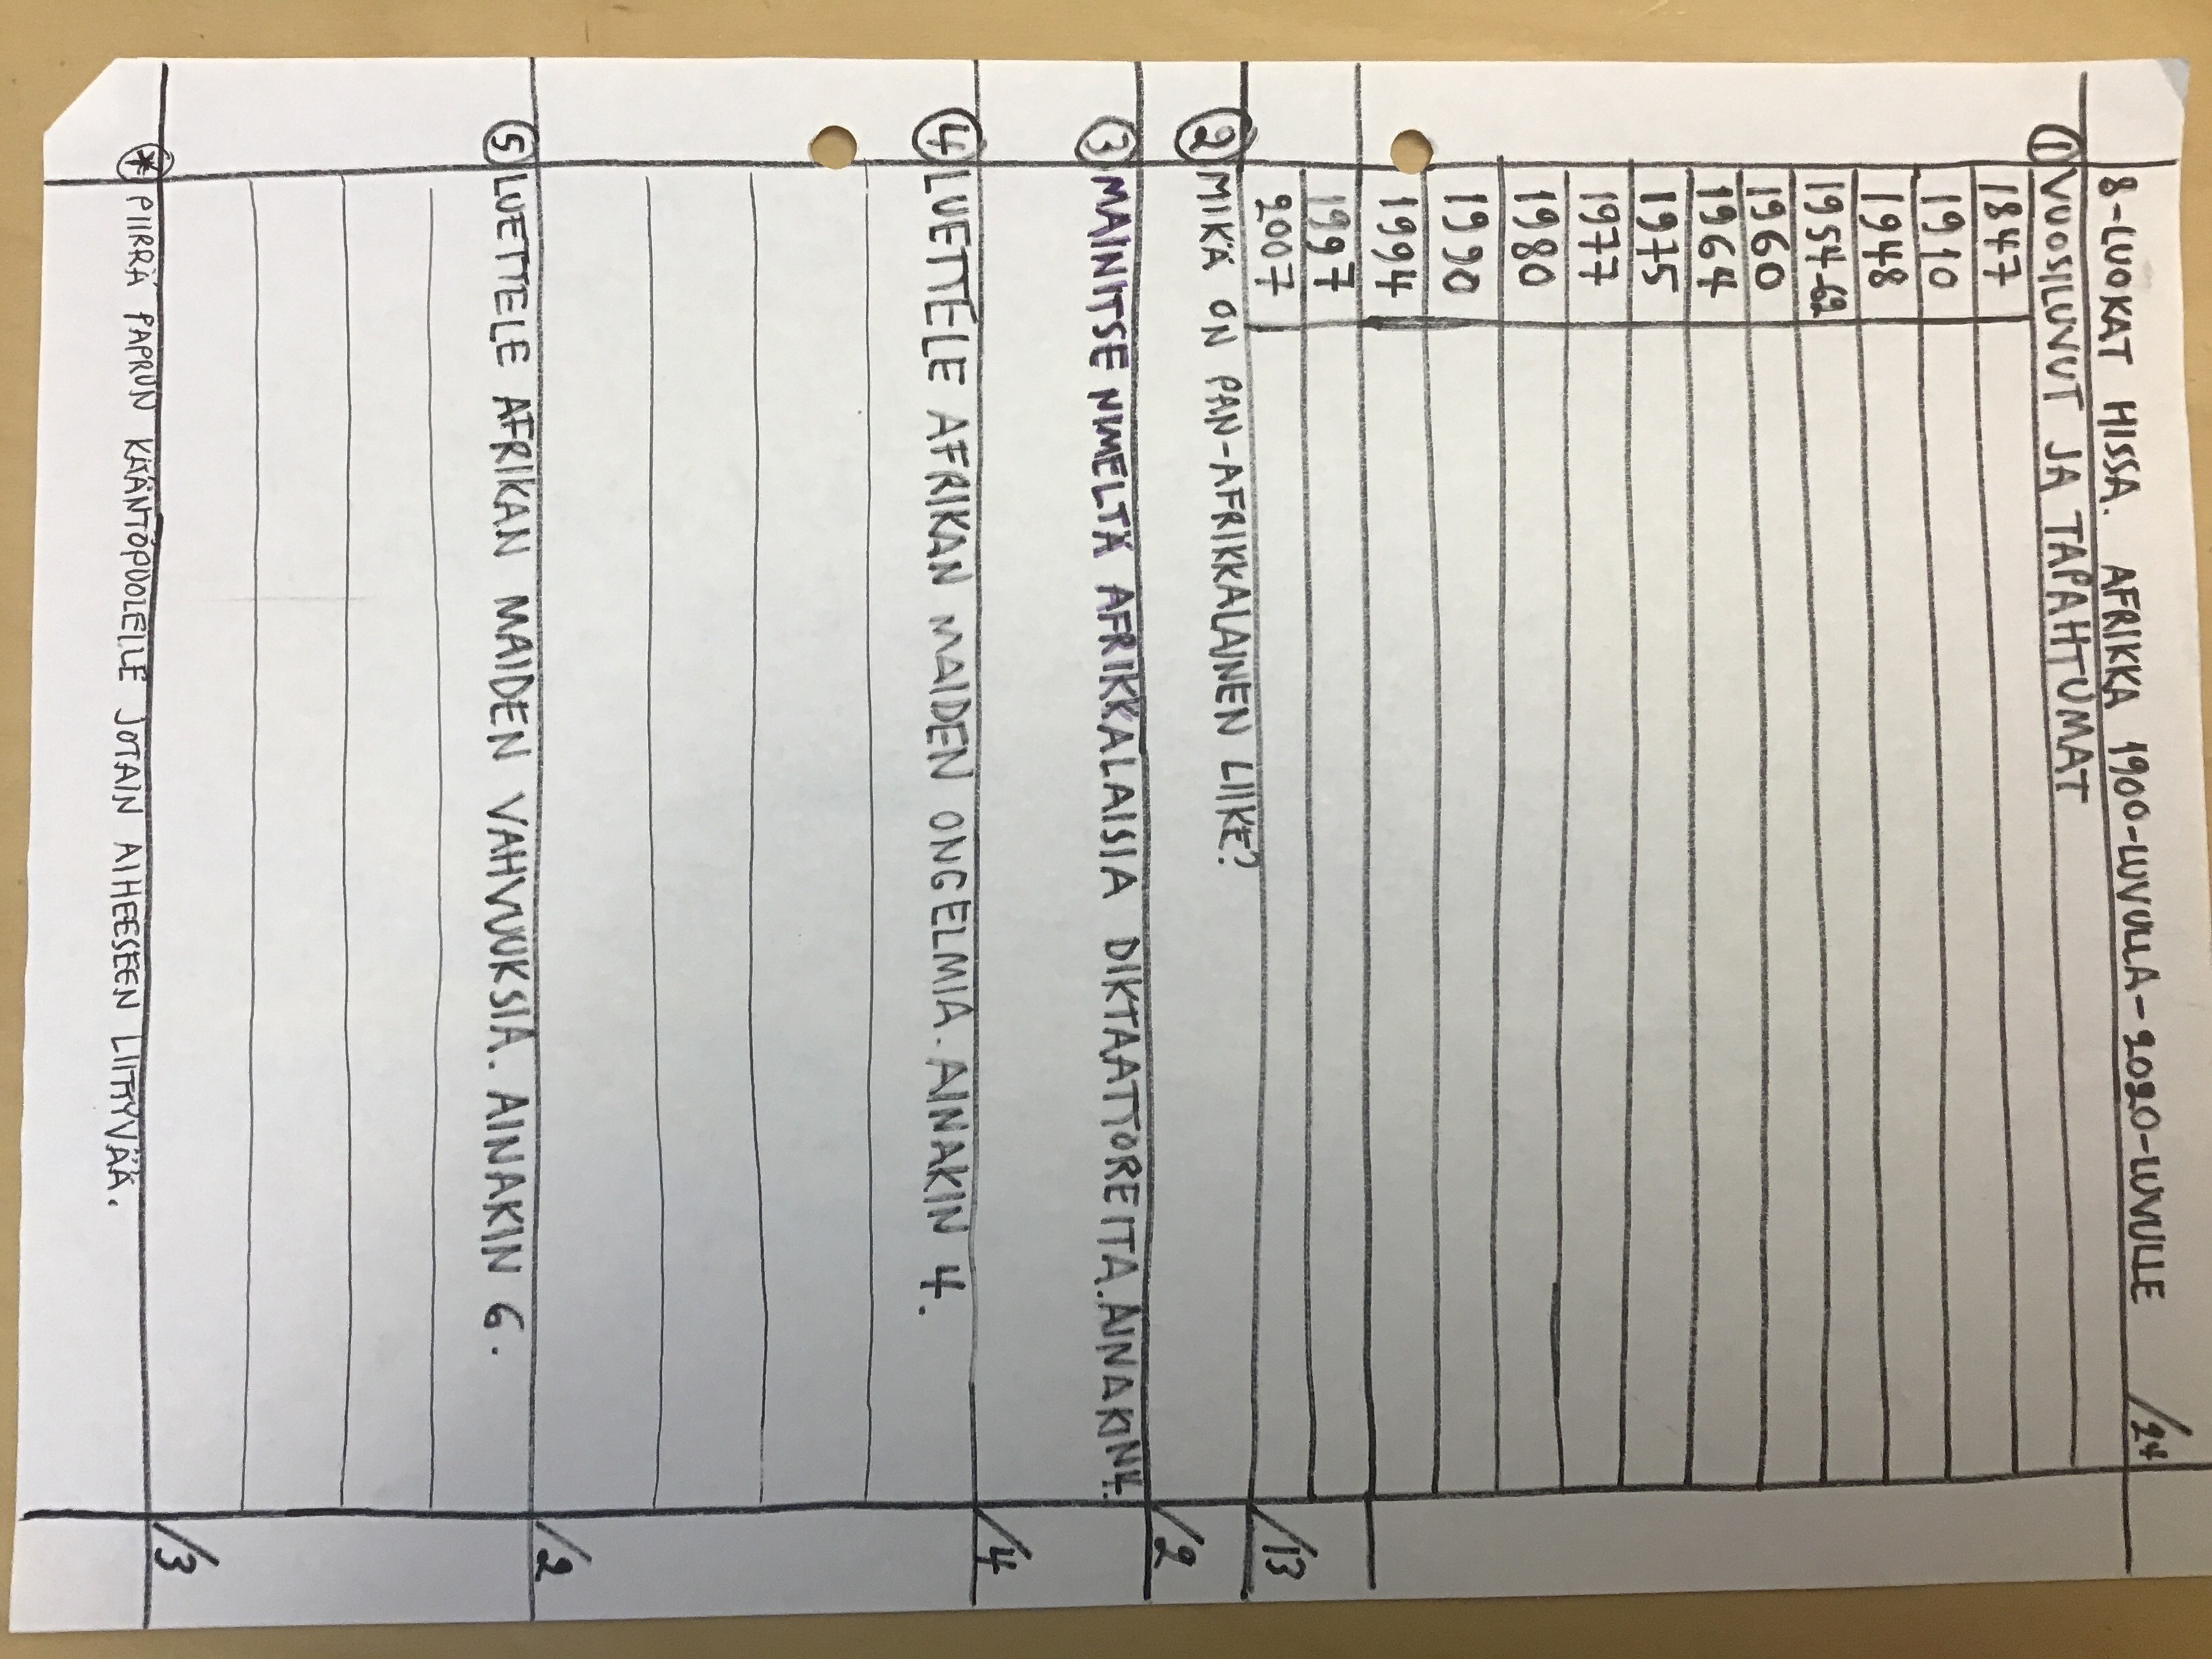 8-LUOKAT HISSA. AFRIKKA 1900-LUVULLA-2020-LUVULLE /24
① VUOSILUVUT JA TAPAHTUMAT
1847
1910
1948
1954-62
1960
1964
1975
1977
1980
1990
1994
1997
2007
/13
② MIKÄ ON PAN-AFRIKKALAINEN LIIKE?
/2
③ MAINITSE NIMELTÄ AFRIKKALAISIA DIKTAATTOREITA. AINAKIN 4.
/4
④ LUETTELE AFRIKAN MAIDEN ONGELMIA. AINAKIN 4.
/2
⑤ LUETTELE AFRIKAN MAIDEN VAHVUUKSIA. AINAKIN 6.
/3
* PIIRRÄ PAPRUN KÄÄNTÖPUOLELLE JOTAIN AIHEESEEN LIITTYVÄÄ.